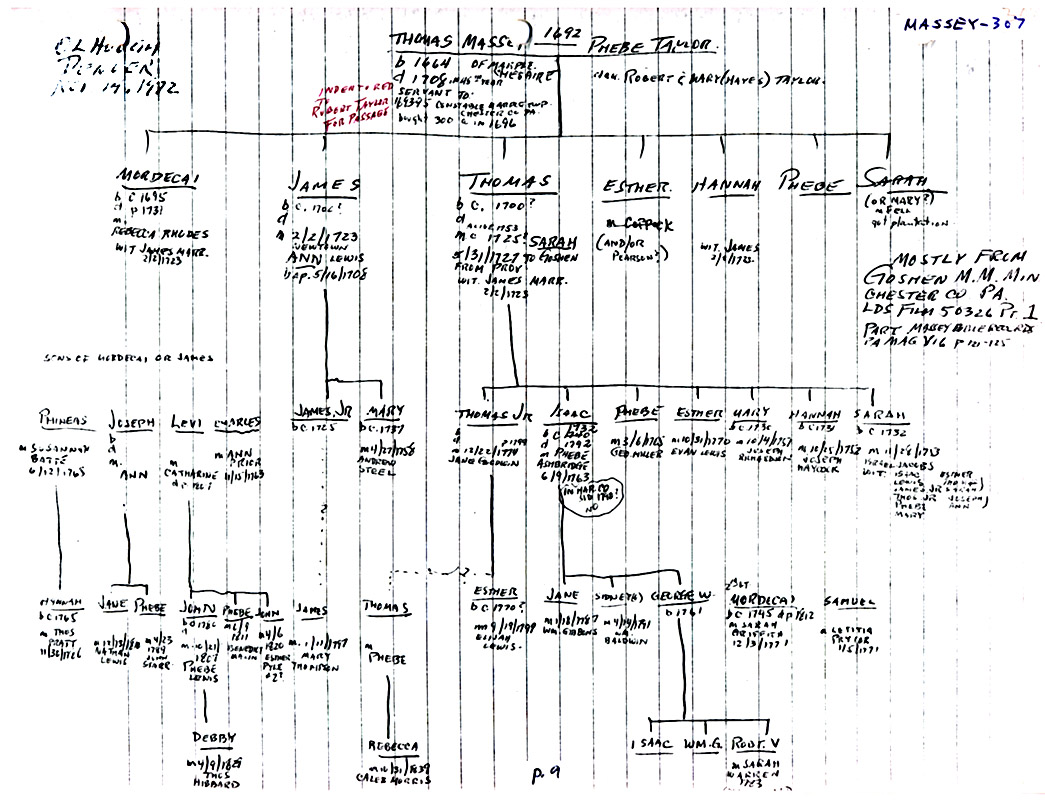 MASSEY-307
THOMAS MASSEY 1692 PHEBE TAYLOR
b 1664 OF MARPLE
CHESHIRE
d 1708
dau. ROBERT & MARY (HAYES) TAYLOR
SERVANT TO
CONSTABLE MARPLE TWP.
CHESTER CO PA.
bought 300 a in 1696
INDENTURED
TO
ROBERT TAYLOR
FOR PASSAGE
MORDECAI
b c 1695
d p 1731
m.
REBECCA RHODES
WIT JAMES MARR.
2/2/1723
JAMES
b c. 1700?
d
m 2/2/1723
NEWTOWN
ANN LEWIS
bap. 5/16/1708
THOMAS
b c. 1700?
d
m c 1725? SARAH
5/31/1727 TO GOSHEN
FROM PROV
WIT. JAMES MARR.
2/2/1723
ESTHER.
m COPPOCK
(AND/OR
PEARSON?)
HANNAH
WIT. JAMES
2/2/1723
PHEBE
SARAH
(OR MARY?)
m FELL
got plantation
MOSTLY FROM
GOSHEN M.M. MIN
CHESTER CO PA.
LDS FILM 50326 PT. 1
PART MASSEY BIBLE RECORDS
PA MAG V16 P 121-125
SONS OF MORDECAI OR JAMES
PHINEAS
m SUSANNAH
BATTE
6/12/1765
JOSEPH
b
d
m.
ANN
LEVI
m
CATHARINE
CHARLES
m ANN
PRIOR
11/15/1763
JAMES, JR
b c 1725
MARY
b c. 1737
m 4/27/1758
ANDREW
STEEL
THOMAS JR
b
d p 1799
m 12/22/1779
JANE GOODWIN
ISAAC
1732
b c 1740
d 1792
m PHEBE
ASHBRIDGE
6/9/1763
IN HAR CO
1790?
NO
PHEBE
m 3/6/1765
GEO. MILLER
ESTHER
m 10/31/1770
EVAN LEWIS
MARY
b c 1730
m 10/4/1757
JOSEPH
RICHARDSON
HANNAH
b c 1731
m 10/25/1752
JOSEPH
HAYCOCK
SARAH
b c 1732
m 11/29/1753
ISRAEL JACOBS
WIT. ISAAC ESTHER
LEWIS
JAMES JR SARAH
THOS JR JOSEPH
PHEBE ANN
MARY
HANNAH
b c 1765
m THOS
PRATT
11/30/1786
JANE
NATHAN
LEWIS
PHEBE
m 4/23
1789
JOHN
STARR
JOHN
b c 1780
m. 10/21/
1807
PHEBE
LEWIS
PHEBE
m 1/9
1811
BENEDICT
MALIN
JOHN
m 4/6
1820
ESTHER
PYLE
#2?
JAMES
m. 1/11/1797
MARY
THOMPSON
THOMAS
m
PHEBE
ESTHER
b c 1770?
m 9/19/1799
ELIJAH
LEWIS.
JANE
m 1/18/1787
WM. GIBBONS
m 4/14/1791
WM.
BALDWIN
GEORGE W.
b 1761
MORDECAI
b c 1745 d p 1812
m SARAH
GRIFFITH
12/3/1771
SAMUEL
m LETITIA
PRYOR
1/5/1771
DEBBY
m 4/9/1829
THOS
HIBBARD
REBECCA
m 10/31/1839
CALEB MORRIS
p. 9
ISAAC WM. G. ROBT. V
m SARAH
WARREN